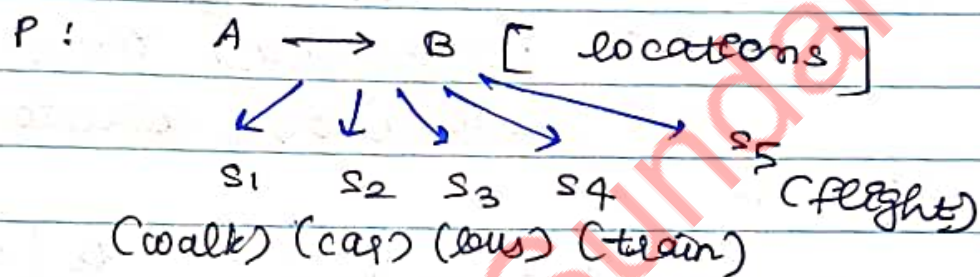 P : A ⟶ B [ locations ]
S1 S2 S3 S4 S5
(walk) (car) (bus) (train) (flight)